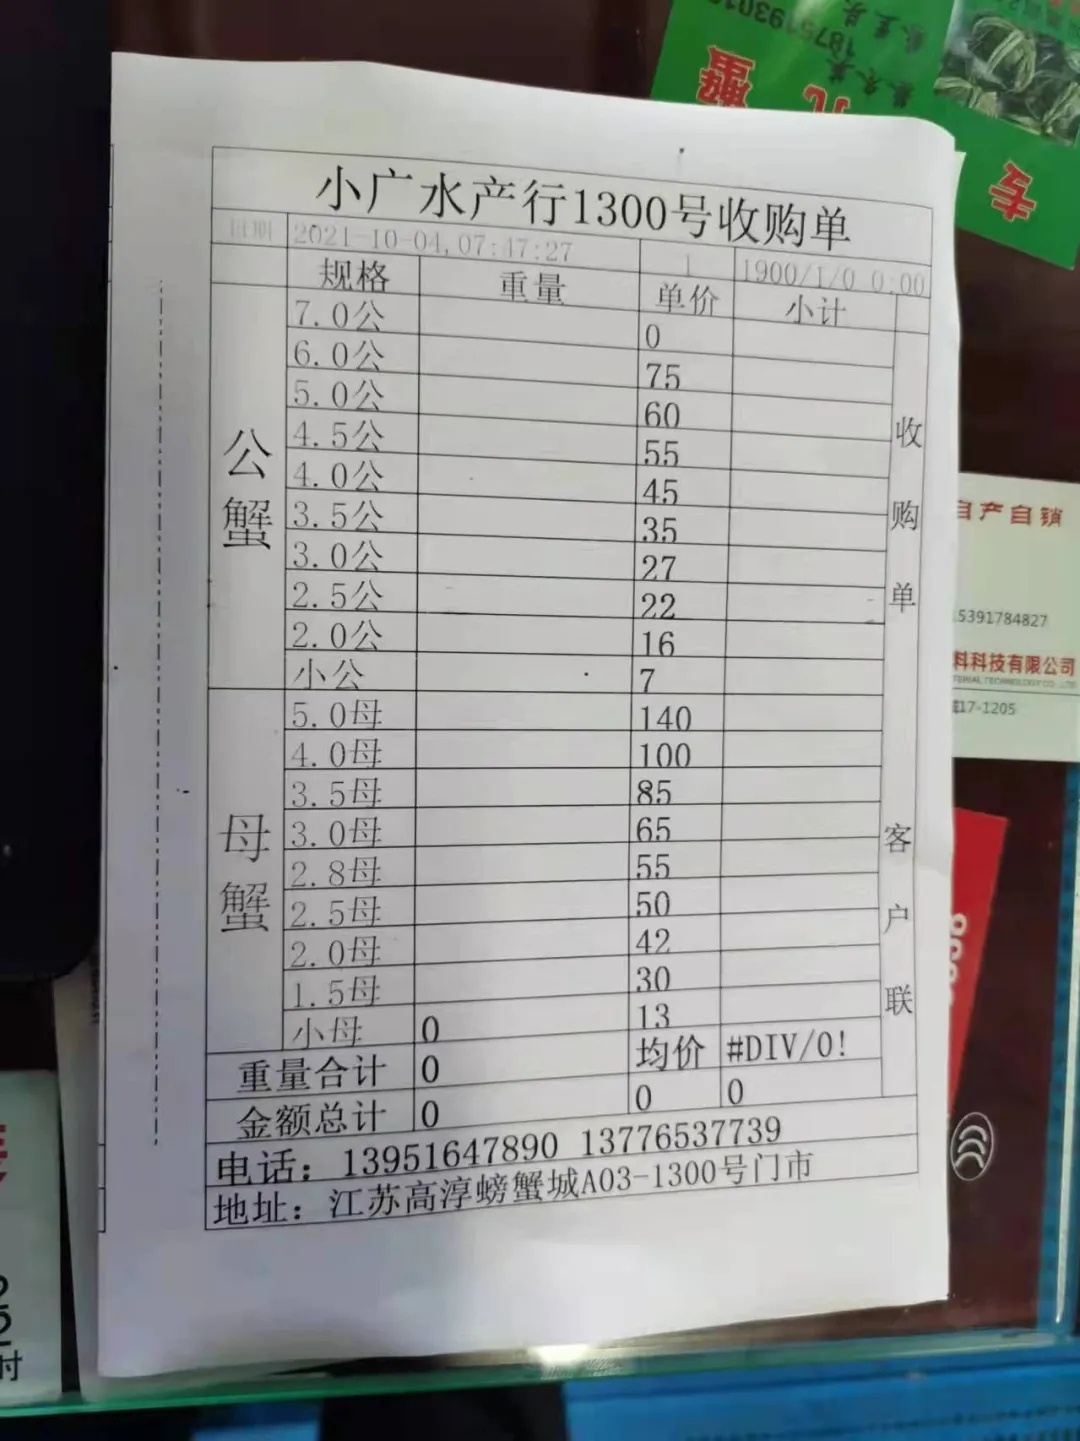 小广水产行1300号收购单
日期 2021-10-04,07:47:27 1 1900/1/0 0:00
规格 重量 单价 小计
公蟹
7.0公 0
6.0公 75
5.0公 60
4.5公 55
4.0公 45
3.5公 35
3.0公 27
2.5公 22
2.0公 16
小公 7
母蟹
5.0母 140
4.0母 100
3.5母 85
3.0母 65
2.8母 55
2.5母 50
2.0母 42
1.5母 30
小母 0 13
重量合计 0 均价 #DIV/0!
金额总计 0 0 0
电话：13951647890 13776537739
地址：江苏高淳螃蟹城A03-1300号门市
收购单
客户联
蟹
专
自产自销
15391784827
料科技有限公司
17-1205